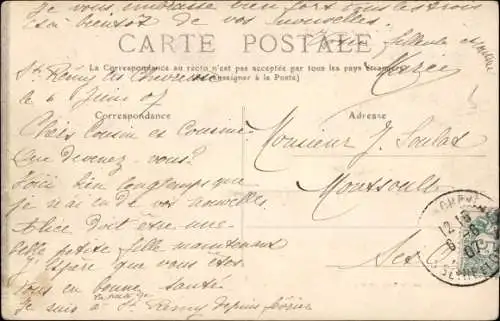 Je vous embrasse bien fort tous les trois
à bientôt de vos nouvelles.
CARTE POSTALE
Votre filleule et
Marcel
La Correspondance au recto n'est pas acceptée par tous les pays étrangers
(Se renseigner à la Poste)
St Rémy les Chevreuse
le 6 Juin 07
Correspondance
Adresse
Chers Cousin et Cousine
Que devenez-vous?
Voici bien longtemps que
je n'ai eu de vos nouvelles.
Alice doit être une
belle petite fille maintenant
J'espère que vous êtes
tous en bonne santé
Je suis à St Rémy depuis février
Monsieur J. Soulas
Montsoult
Set
12 15
6 -6
07